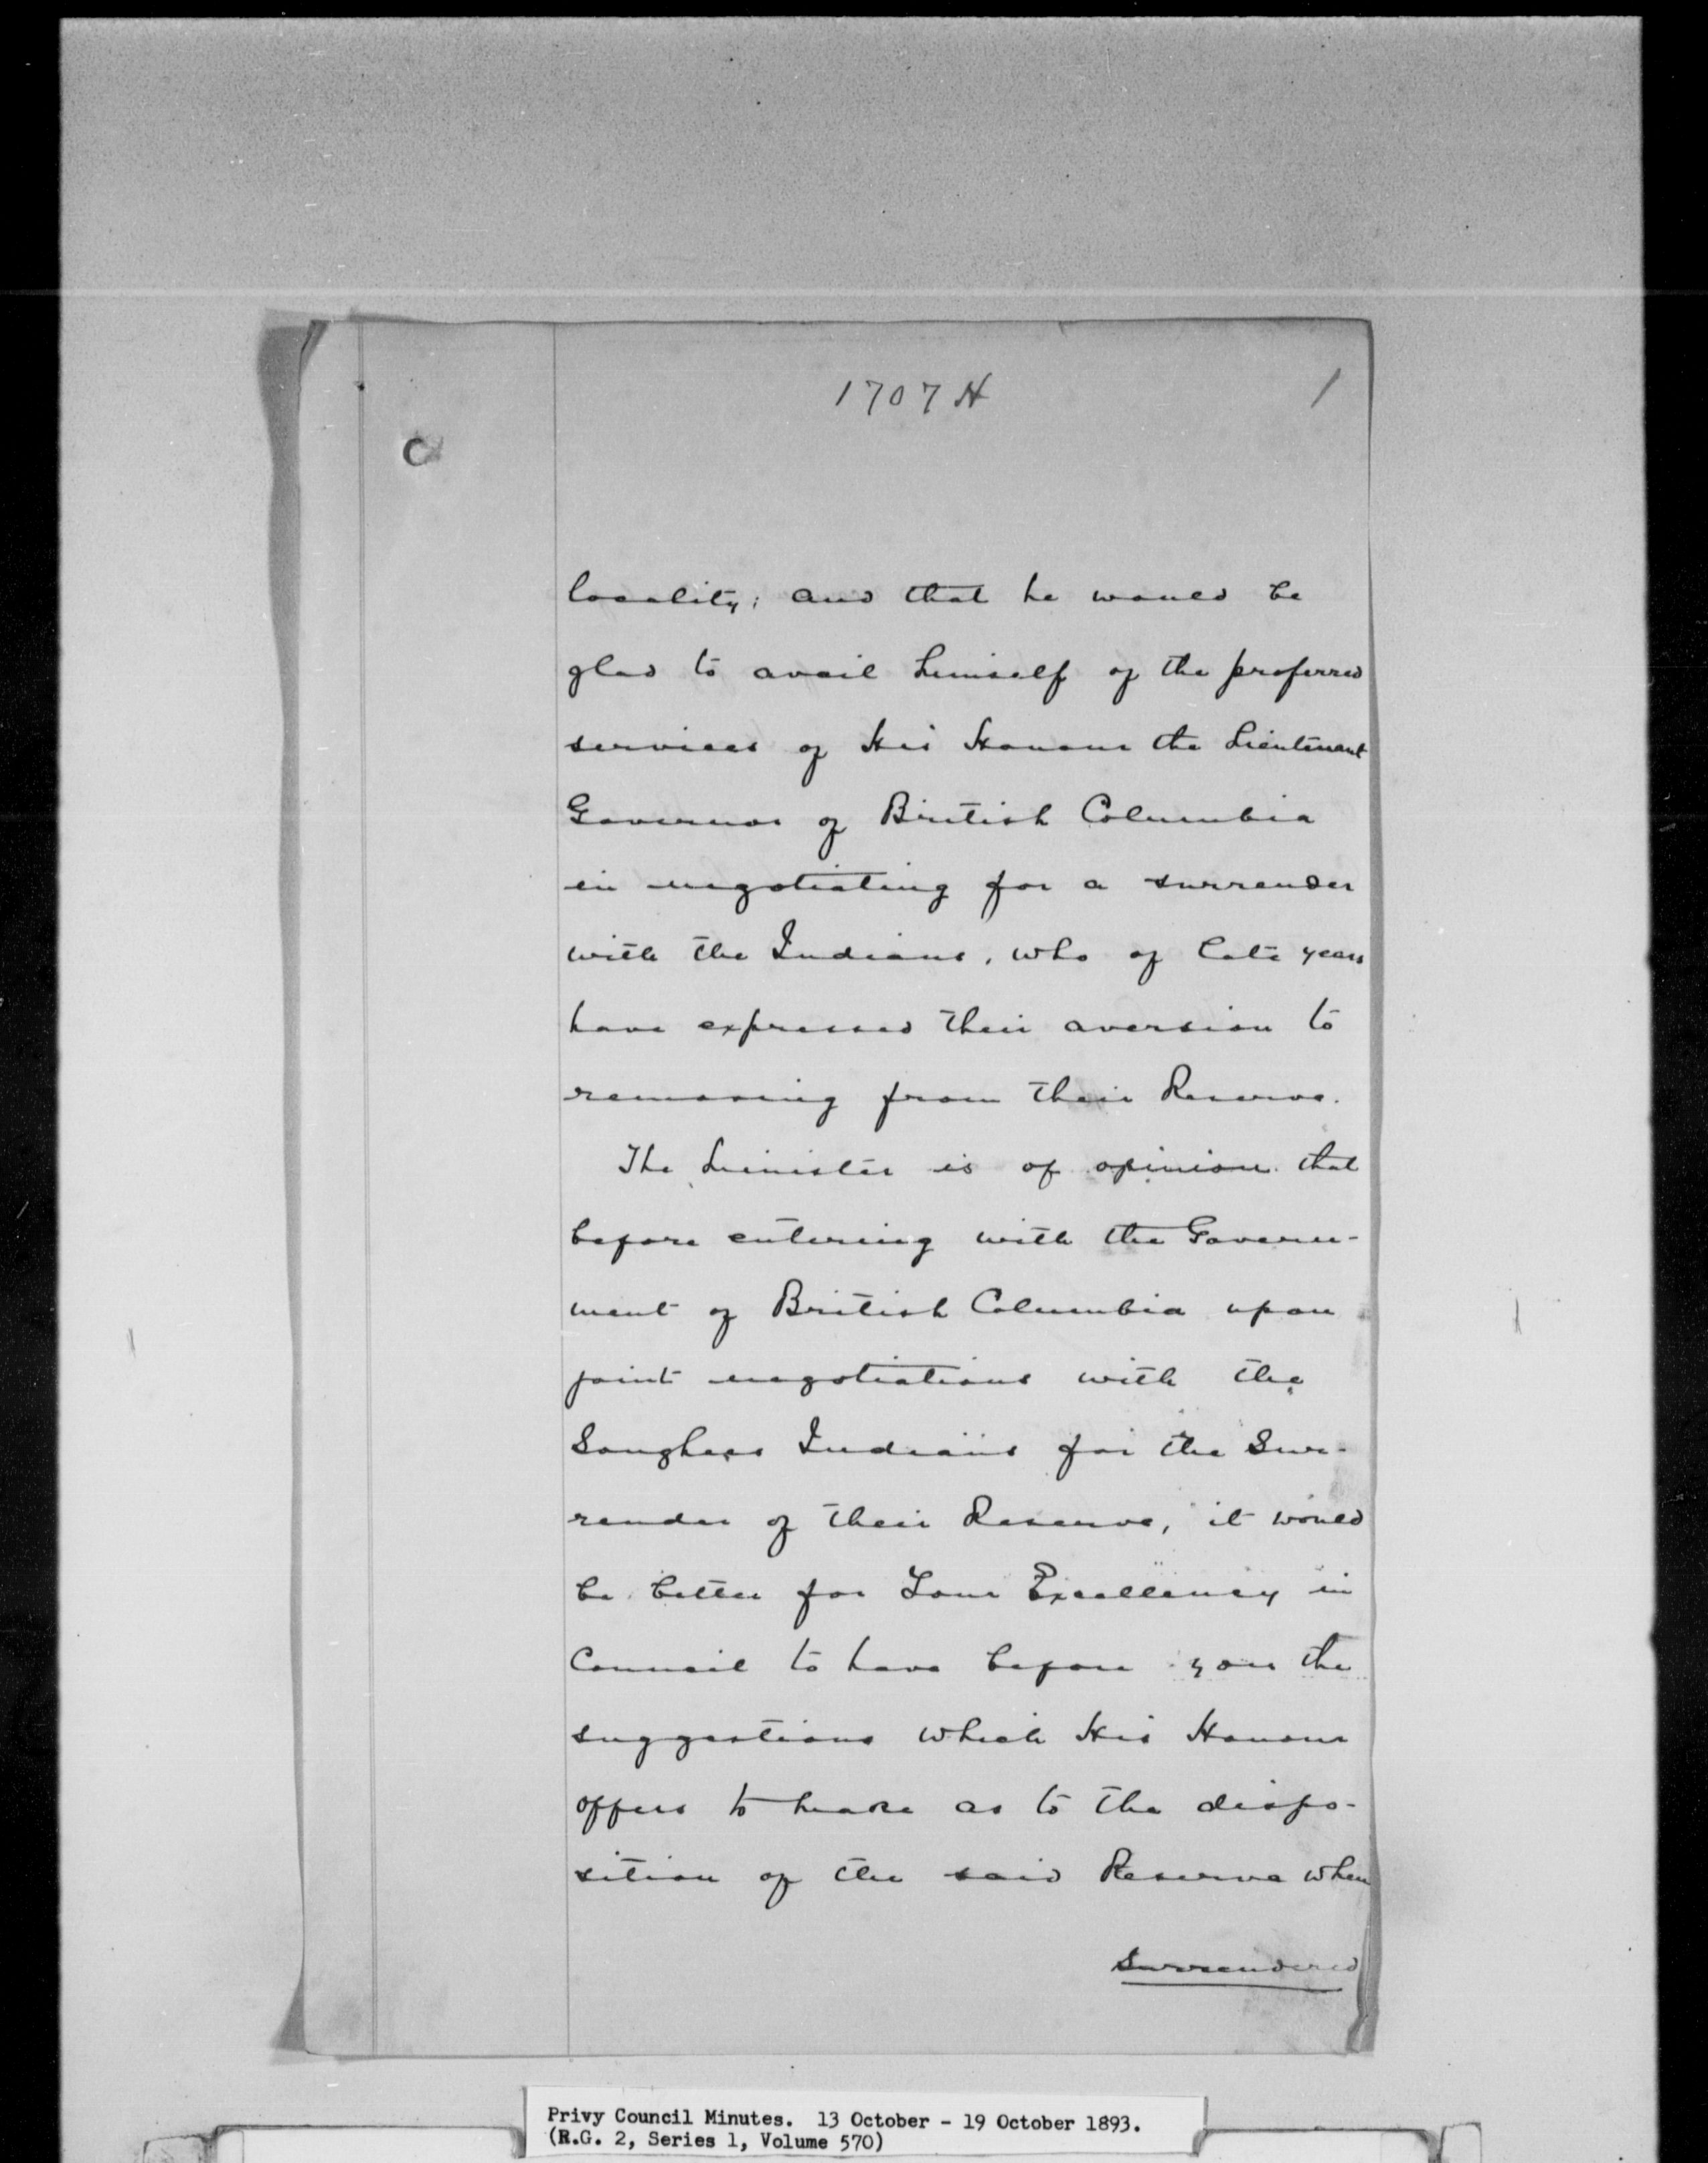 1707 H
1
C
locality; and that he would be
glad to avail himself of the proferred
services of His Honour the Lieutenant
Governor of British Columbia
in negotiating for a surrender
with the Indians, who of late years
have expressed their aversion to
removing from their Reserve.
The Minister is of opinion that
before entering with the Govern-
ment of British Columbia upon
joint negotiations with the
Songhees Indians for the Sur-
render of their Reserve, it would
be better for Your Excellency in
Council to have before you the
suggestions which His Honour
offers to make as to the dispo-
sition of the said Reserve when
surrendered
Privy Council Minutes. 13 October - 19 October 1893.
(R.G. 2, Series 1, Volume 570)